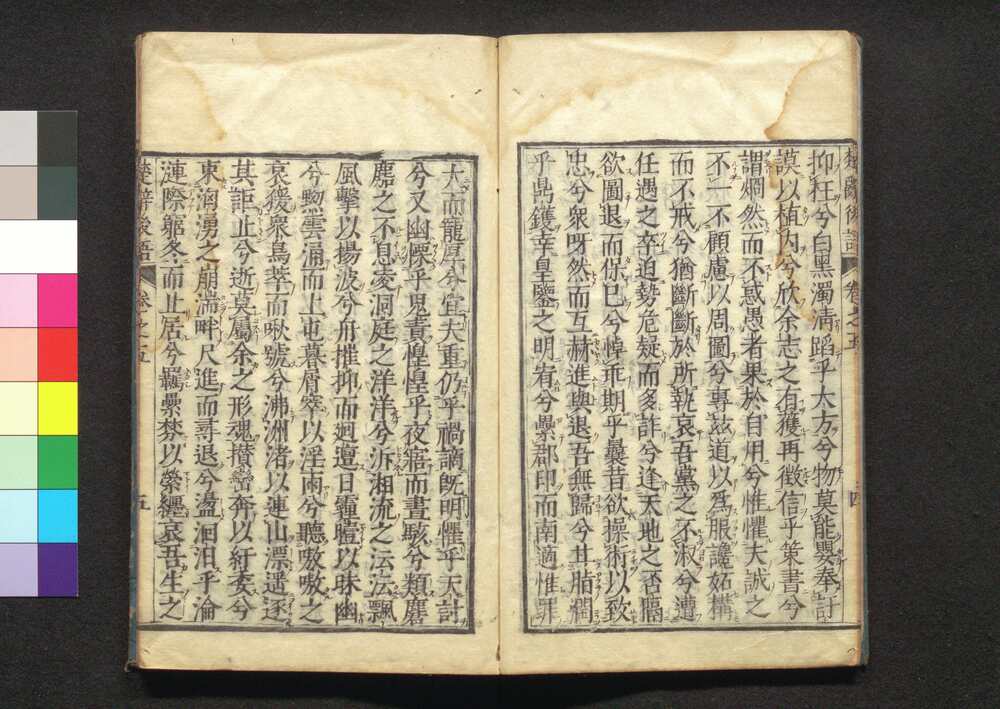 楚辭後語 卷之五 四
抑枉兮白黑濁清蹈乎大方兮物莫能嬰奉訏
謨以植内兮欣余志之有獲再徵信乎策書兮
謂烱然而不惑愚者果於自用兮惟懼夫誠之
不一不顧慮以周圖兮專茲道以爲服讒妬構
而不戒兮猶斷斷於所執哀吾黨之不淑兮遭
任遇之卒迫勢危疑而多詐兮逢天地之否隔
欲圖退而保巳兮悼乖期乎曩昔欲操術以致
忠兮衆呀然而互赫進與退吾無歸兮甘脂潤
乎鼎鑊幸皇鑒之明宥兮纍郡印而南適惟罪
大而寵厚兮宜夫重仍乎禍謫旣明懼乎天討
兮又幽慄乎鬼責惶惶乎夜寤而晝駭兮類麏
麚之不息凌洞庭之洋洋兮泝湘流之沄沄飄
風擊以揚波兮舟摧抑而迴邅日霾曀以昧幽
兮黝雲涌而上屯暮屑窣以淫雨兮聽嗷嗷之
哀猨衆鳥萃而啾號兮沸洲渚以連山漂遥逐
其詎止兮逝莫屬余之形魂攢巒奔以紆委兮
束洶湧之崩湍畔尺進而尋退兮盪洄汨乎淪
漣際窮冬而止居兮羈纍棼以縈纏哀吾生之
楚辭後語 卷之五 五